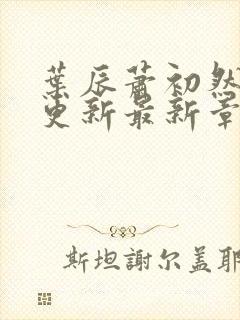 葉辰蕭初然
更新最新章
斯坦謝尔盖耶